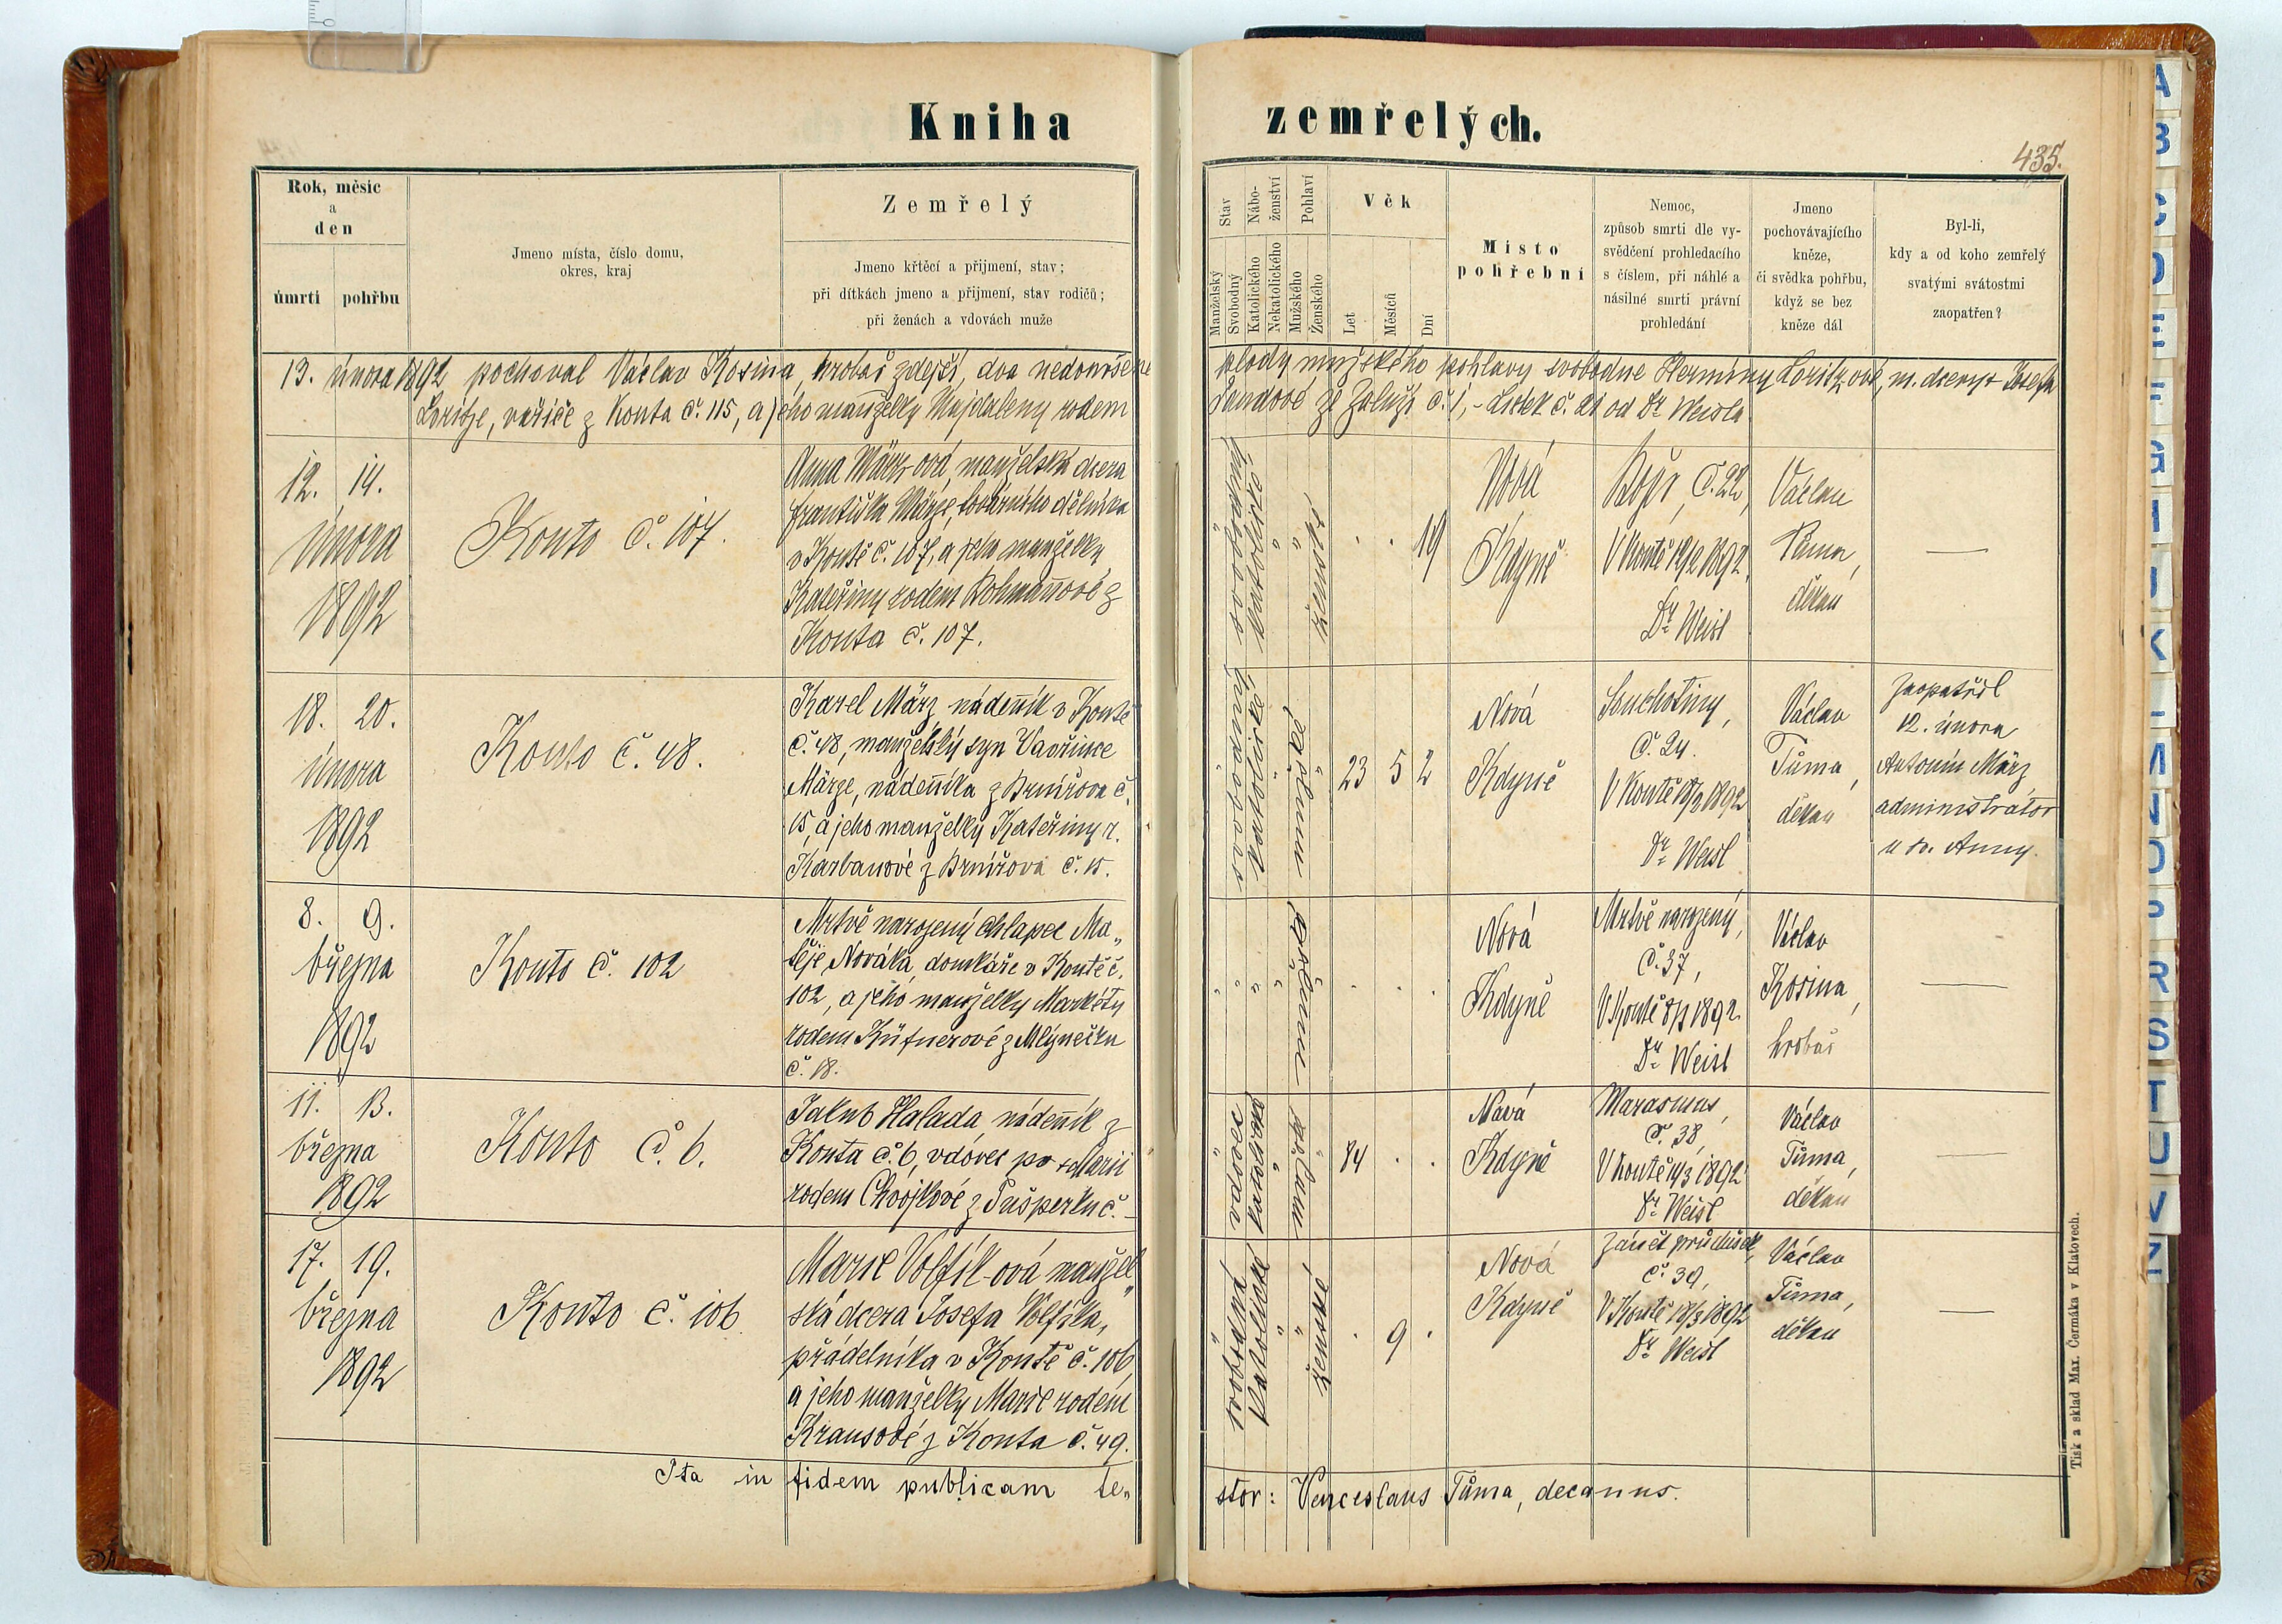 Kniha zemřelých.
435.
Rok, měsíc
a
den
úmrti pohřbu
Jmeno místa, číslo domu,
okres, kraj
Zemřelý
Jmeno křtěcí a přijmení, stav;
při dítkách jmeno a přijmení, stav rodičů;
při ženách a vdovách muže
Stav
Manželský
Svobodný
Nábo-
ženství
Katolického
Nekatolického
Pohlaví
Mužského
Ženského
Věk
Let
Měsíců
Dní
Místo
pohřební
Nemoc,
způsob smrti dle vy-
svědčení prohledacího
s číslem, při náhlé a
násilné smrti právní
prohledání
Jmeno
pochovávajícího
kněze,
či svědka pohřbu,
když se bez
kněze dál
Byl-li,
kdy a od koho zemřelý
svatými svátostmi
zaopatřen?
13. února 1892 pochoval Václav Kosina, hrobař zdejší, dva nedonošené plody mužského pohlavy svobodne Herminy Loritz-ové, m. dcery + Josefa
Loritze, vařiče z Kouta č. 115, a jeho manželky Majdaleny rodem Jandové ze Zaluží č. 1, - Lístek č. 21 od Dr. Weisla
12. 14.
února
1892
Kouto č. 107.
Anna März-ová, manželská dcera
Františka Märze, továrního dělníka
v Koutě č. 107, a jeho manželky
Kateřiny rodem Kohmaňové z
Kouta č. 107.
svobodná
katolické
ženské
. . 19
Nová
Kdyně
č. 22,
V Koutě 12/2 1892.
Dr. Weisl
Václav
Tůma,
děkan
—
18. 20.
února
1892
Kouto č. 48.
Karel März nádeník v Koutě
č. 48, manželský syn Vavřince
Märze, nádeníka z Brnířova č.
15, a jeho manželky Kateřiny r.
Karbanové z Brnířova č. 15.
svobodný
katolické
mužské
23 5 2
Nová
Kdyně
Souchotiny,
č. 24.
V Koutě 18/2 1892
Dr. Weisl
Václav
Tůma,
děkan
Zaopatřil
12. února
Antonín März,
administrator
u sv. Anny.
8. 9.
března
1892
Kouto č. 102
Mrtvě narozený chlapec Ma„
těje Nováka, domkáře v Koutě č.
102, a jeho manželky Markéty
rodem Küfnerové z Mlýnečku
č. 18.
mužské
. . .
Nová
Kdyně
Mrtvě narozený,
č. 37,
V Koutě 8/3 1892
Dr. Weisl
Václav
Kosina,
hrobař
—
11. 13.
března
1892
Kouto č. 6.
Jakub Halada, nádeník z
Kouta č. 6, vdovec po + Marii
rodem Chvojkové z Pušperku č. -
vdovec
katolické
mužské
84 . .
Nová
Kdyně
Marasmus,
č. 38,
V Koutě 11/3 1892
Dr. Weisl
Václav
Tůma,
děkan
—
17. 19.
března
1892
Kouto č. 106
Marie Volfík-ová manžel„
ská dcera Josefa Volfíka,
přádelníka v Koutě č. 106,
a jeho manželky Marie rodem
Krausové z Kouta č. 49.
svobodná
katolické
ženské
. 9 .
Nová
Kdyně
Zánět průdušek,
č. 39,
V Koutě 18/3 1892
Dr. Weisl
Václav
Tůma,
děkan
—
Ita in fidem publicam te„ stor: Venceslaus Tůma, decanus.
Tisk a sklad Max. Čermáka v Klatovech.
A
B
C
D
E
F
G
H
I
K
L
M
N
O
P
R
S
T
U
V
Z